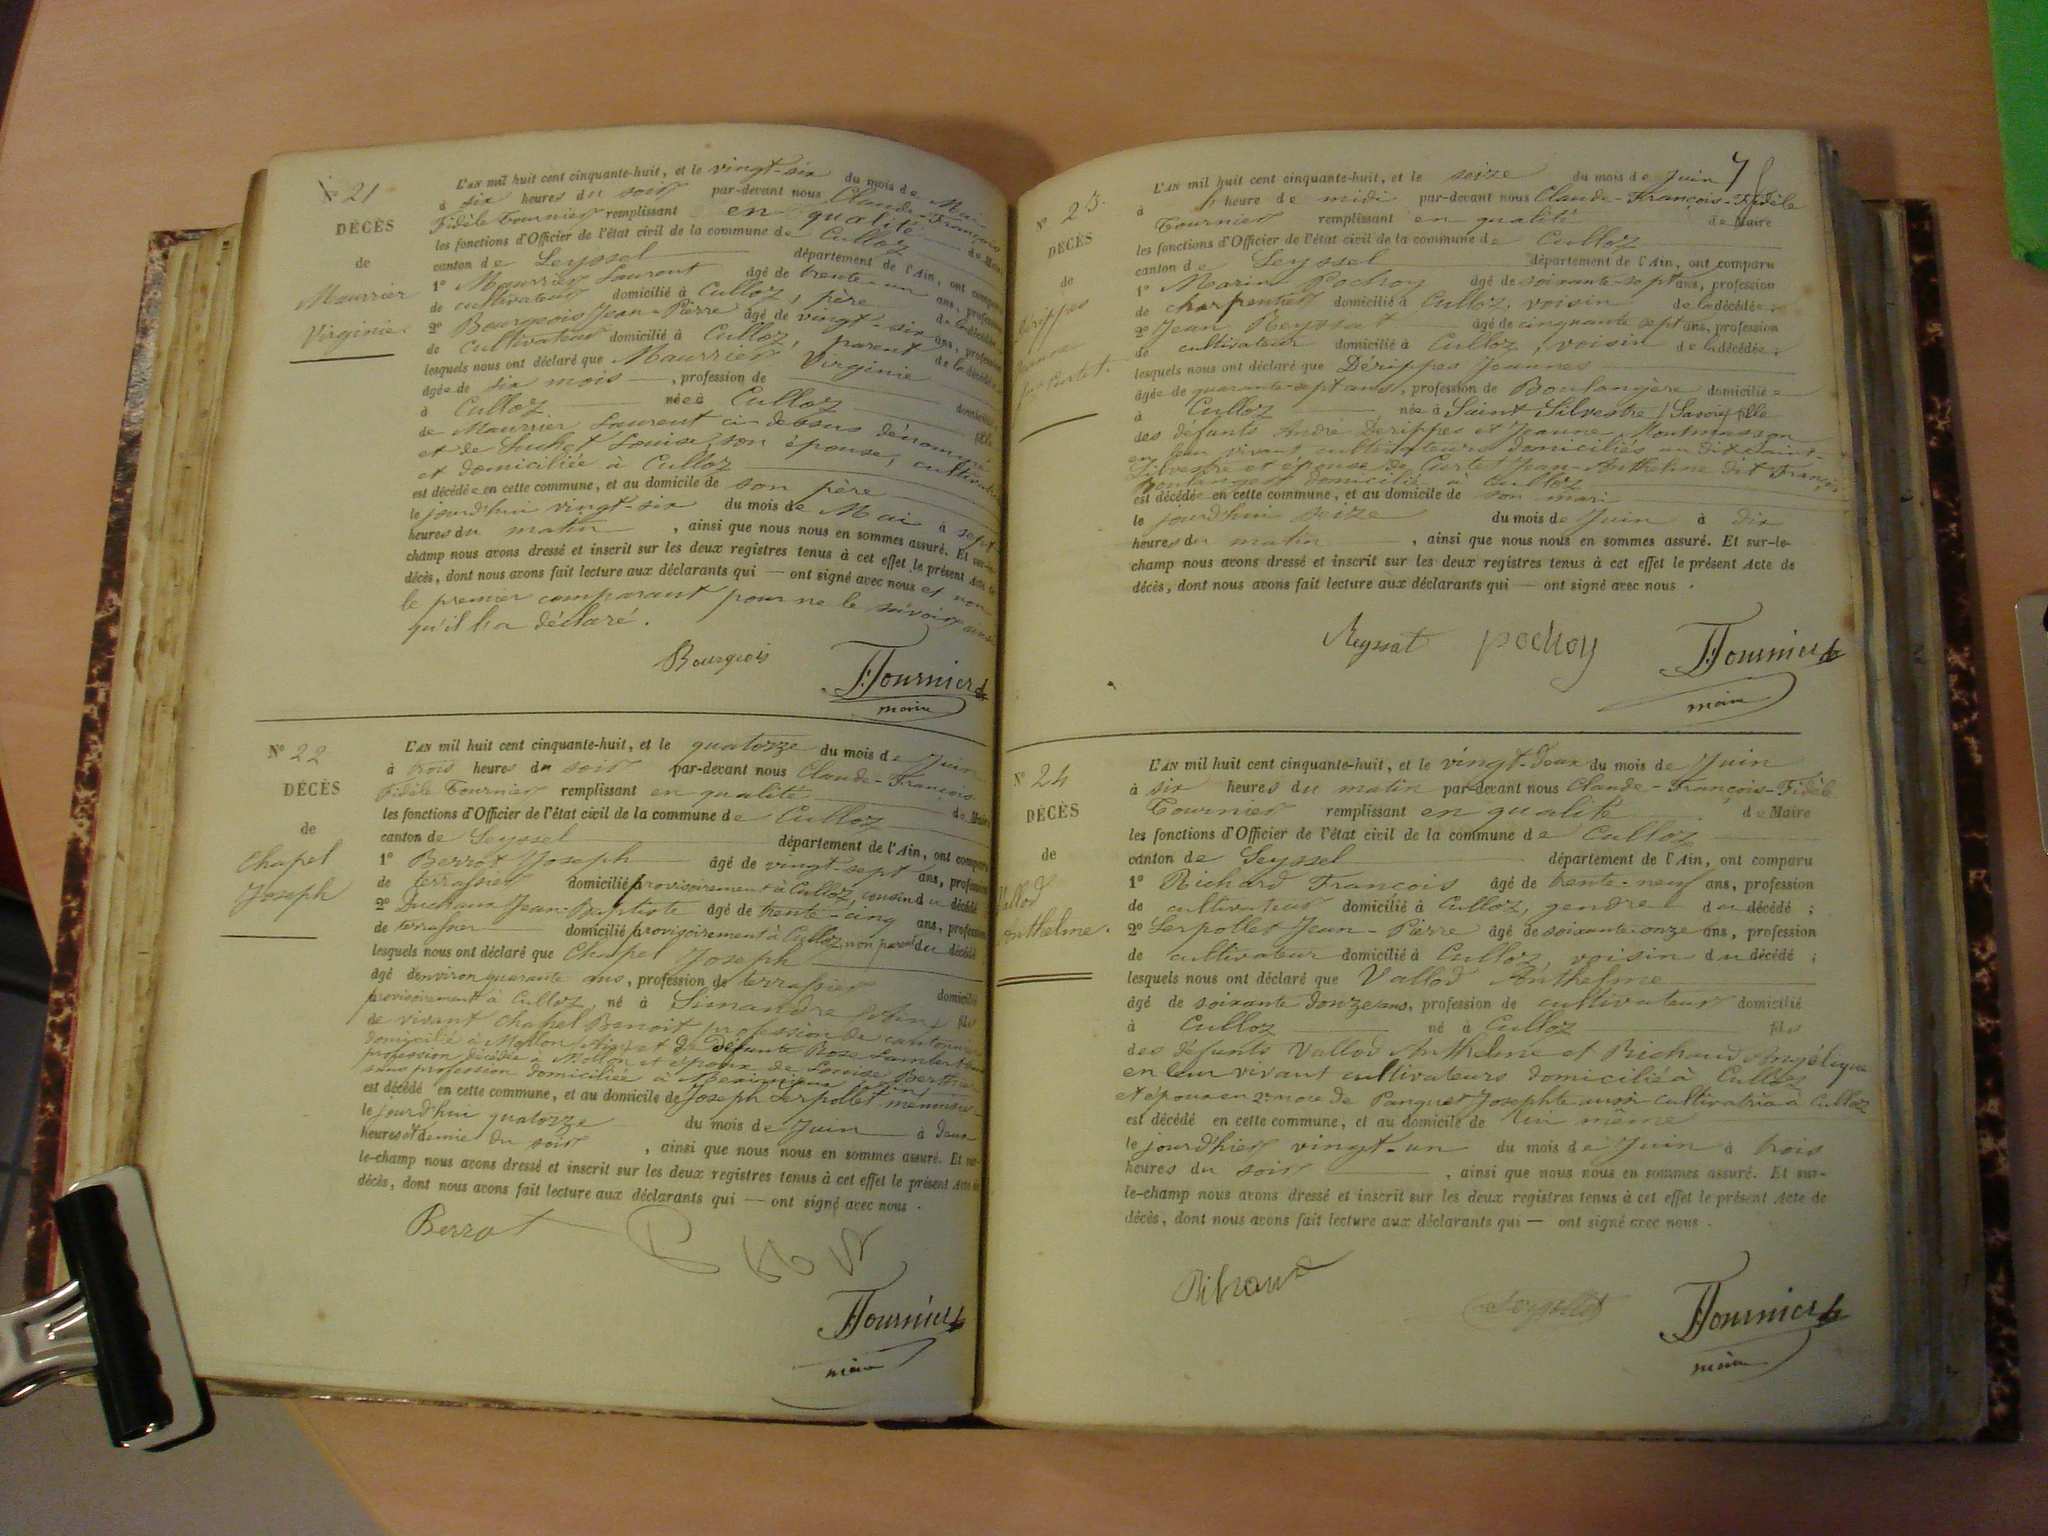 N° 21
DÉCÈS
de
Maurrier
Virginie.
L'AN mil huit cent cinquante-huit, et le vingt-six du mois de Mai
à six heures du soir par-devant nous Claude-François
Fidèle Tournier remplissant en qualité de Maire
les fonctions d'Officier de l'état civil de la commune de Culloz
canton de Seyssel département de l'Ain, ont comparu
1° Maurrier Laurent âgé de trente-un ans, profession
de cultivateur domicilié à Culloz, père de la décédée
2° Bourgeois Jean-Pierre âgé de vingt-six ans, profession
de cultivateur domicilié à Culloz, parent de la décédée
lesquels nous ont déclaré que Maurrier Virginie
âgée de six mois, profession de
à Culloz née à Culloz fille
de Maurrier Laurent ci-dessus dénommé
et de Suchet Louise, son épouse,
et domiciliée à Culloz
est décédée en cette commune, et au domicile de son père
le jourd'hui vingt-six du mois de Mai à sept
heures du matin, ainsi que nous nous en sommes assuré. Et sur-le-
champ nous avons dressé et inscrit sur les deux registres tenus à cet effet le présent Acte de
décès, dont nous avons fait lecture aux déclarants qui — ont signé avec nous et non
le premier comparant pour ne le savoir ainsi
qu'il l'a déclaré.
Bourgeois Tournier
maire
N° 22
DÉCÈS
de
Chapel
Joseph
L'AN mil huit cent cinquante-huit, et le quatorze du mois de Juin
à trois heures du soir par-devant nous Claude-François
Fidèle Tournier remplissant en qualité de Maire
les fonctions d'Officier de l'état civil de la commune de Culloz
canton de Seyssel département de l'Ain, ont comparu
1° Berrot Joseph âgé de vingt-sept ans, profession
de terrassier domicilié provisoirement à Culloz, cousin du décédé
2° Duchaux Jean-Baptiste âgé de trente-cinq ans, profession
de terrassier domicilié provisoirement à Culloz, non parent du décédé
lesquels nous ont déclaré que Chapel Joseph
âgé d'environ quarante ans, profession de terrassier domicilié
provisoirement à Culloz, né à Simandre fils
de vivant Chapel Benoit profession de cantonnier
domicilié à Mollon (Ain) et de défunte Rose Lambert
profession décédée à Mollon et époux de Louise Berthier
sans profession domiciliée à Meximieux (Ain)
est décédé en cette commune, et au domicile de Joseph Serpollet menuisier
le jourd'hui quatorze du mois de Juin à deux
heures et demie du soir, ainsi que nous nous en sommes assuré. Et sur-
le-champ nous avons dressé et inscrit sur les deux registres tenus à cet effet le présent Acte de
décès, dont nous avons fait lecture aux déclarants qui — ont signé avec nous.
Berrot
Tournier
maire
7
N° 23.
DÉCÈS
de
Dérippes
Jeanne
L'AN mil huit cent cinquante-huit, et le seize du mois de Juin
à heure de midi par-devant nous Claude-François-Fidèle
Tournier remplissant en qualité de Maire
les fonctions d'Officier de l'état civil de la commune de Culloz
canton de Seyssel département de l'Ain, ont comparu
1° Marin Pochoy âgé de soixante-sept ans, profession
de charpentier domicilié à Culloz, voisin de la décédée;
2° Jean Reyssat âgé de cinquante sept ans, profession
de cultivateur domicilié à Culloz, voisin de la décédée;
lesquels nous ont déclaré que Dérippes Jeannes
âgée de quarante-sept ans, profession de Boulangère domiciliée
à Culloz née à Saint Silvestre (Savoie) fille
des défunts André Derippes et Jeanne Montmasson
en leur vivant cultivateurs domiciliés au dit Saint-
Silvestre et épouse de Curtet Jean-Anthelme dit François
Boulanger domicilié à Culloz
est décédée en cette commune, et au domicile de son mari
le jourd'hui seize du mois de Juin à dix
heures du matin, ainsi que nous nous en sommes assuré. Et sur-le-
champ nous avons dressé et inscrit sur les deux registres tenus à cet effet le présent Acte de
décès, dont nous avons fait lecture aux déclarants qui — ont signé avec nous.
Reyssat pochoy Tournier
maire
N° 24
DÉCÈS
de
Vallod
Anthelme.
L'AN mil huit cent cinquante-huit, et le vingt-deux du mois de Juin
à six heures du matin par-devant nous Claude-François-Fidèle
Tournier remplissant en qualité de Maire
les fonctions d'Officier de l'état civil de la commune de Culloz
canton de Seyssel département de l'Ain, ont comparu
1° Richard François âgé de trente-neuf ans, profession
de cultivateur domicilié à Culloz, gendre du décédé;
2° Serpollet Jean-Pierre âgé de soixante-onze ans, profession
de cultivateur domicilié à Culloz, voisin du décédé;
lesquels nous ont déclaré que Vallod Anthelme
âgé de soixante donze ans, profession de cultivateur domicilié
à Culloz né à Culloz fils
des défunts Vallod Anthelme et Richaud Angélique
en leur vivant cultivateurs domicilié à Culloz
et époux en 2es noce de Panquet Josephte aussi cultivatrice à Culloz
est décédé en cette commune, et au domicile de lui même
le jourd'hier vingt-un du mois de Juin à trois
heures du soir, ainsi que nous nous en sommes assuré. Et sur-
le-champ nous avons dressé et inscrit sur les deux registres tenus à cet effet le présent Acte de
décès, dont nous avons fait lecture aux déclarants qui — ont signé avec nous.
Serpollet Tournier
maire